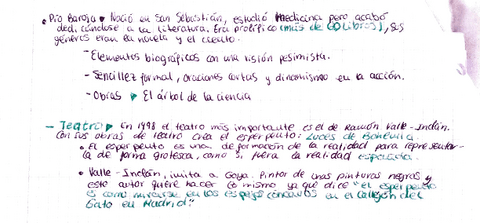 • Pío Baroja ▶ Nació en San Sebastián, estudió medicina pero acabó
dedicándose a la literatura. Era prolífico (más de 60 libros), sus
géneros eran la novela y el cuento.
- Elementos biográficos con una visión pesimista.
- Sencillez formal, oraciones cortas y dinamismo en la acción.
- Obras ▶ El árbol de la ciencia
- Teatro ▶ En 1998 el teatro más importante es el de Ramón Valle-Inclán.
Con sus obras de teatro crea el esperpento: Luces de Bohemia.
• El esperpento es una deformación de la realidad para representar
la de forma grotesca, como si fuera la realidad
• Valle-Inclán, imita a Goya. Pintor de unas pinturas negras y
este autor quiere hacer lo mismo ya que dice "el esperpento
es como mirarse en los espejos cóncavos en el callejón del
Gato en Madrid"